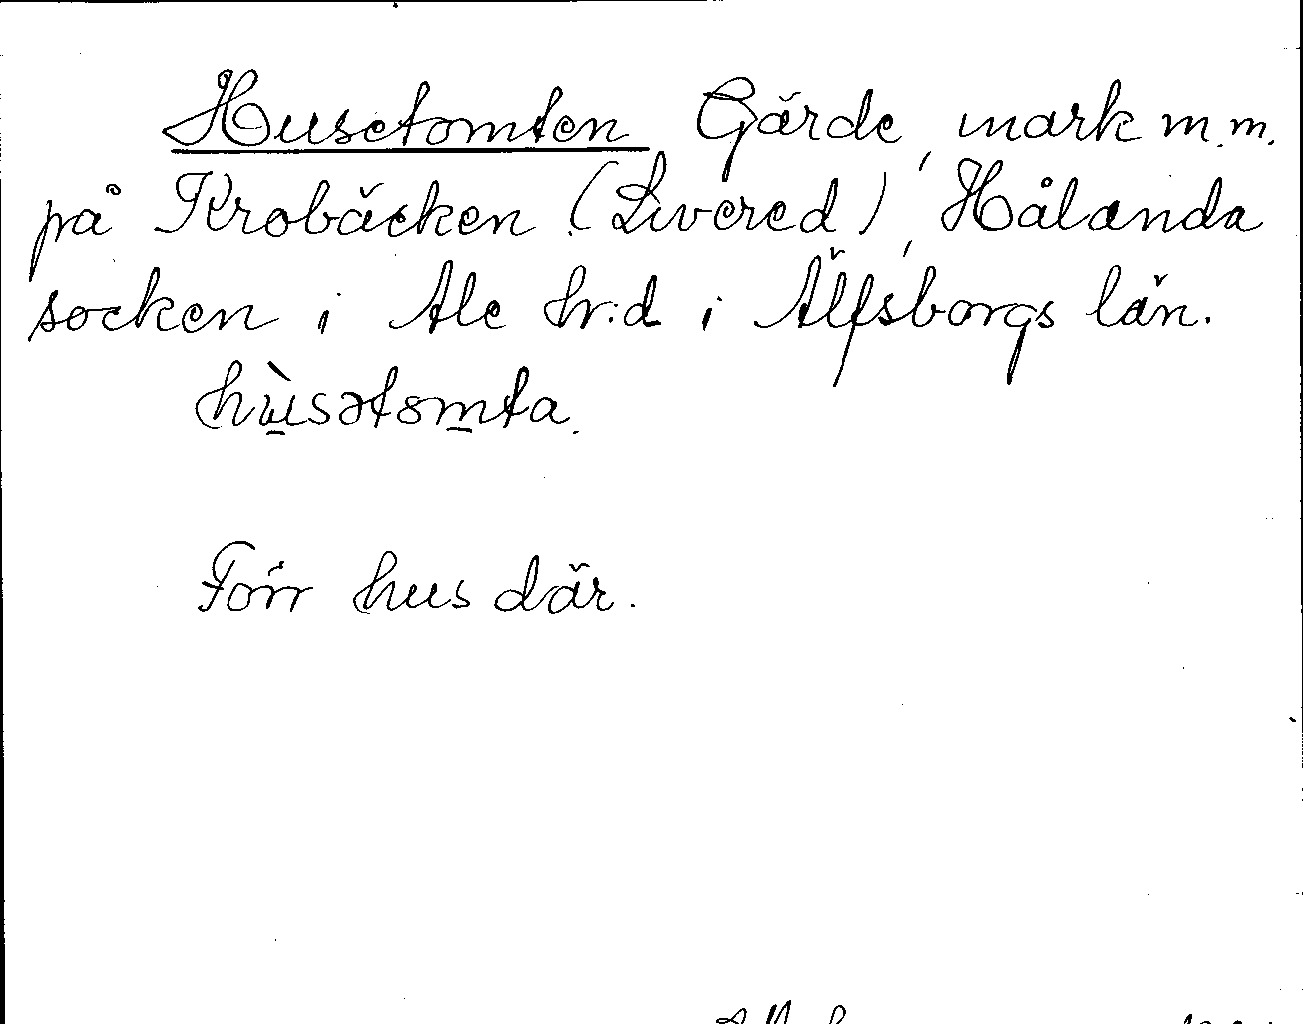 Husetomten Gärde, mark m.m.
på Krobäcken (Livered), Hålanda
socken i Ale hr:d i Älfsborgs län.
hùsətomta.
Förr hus där.